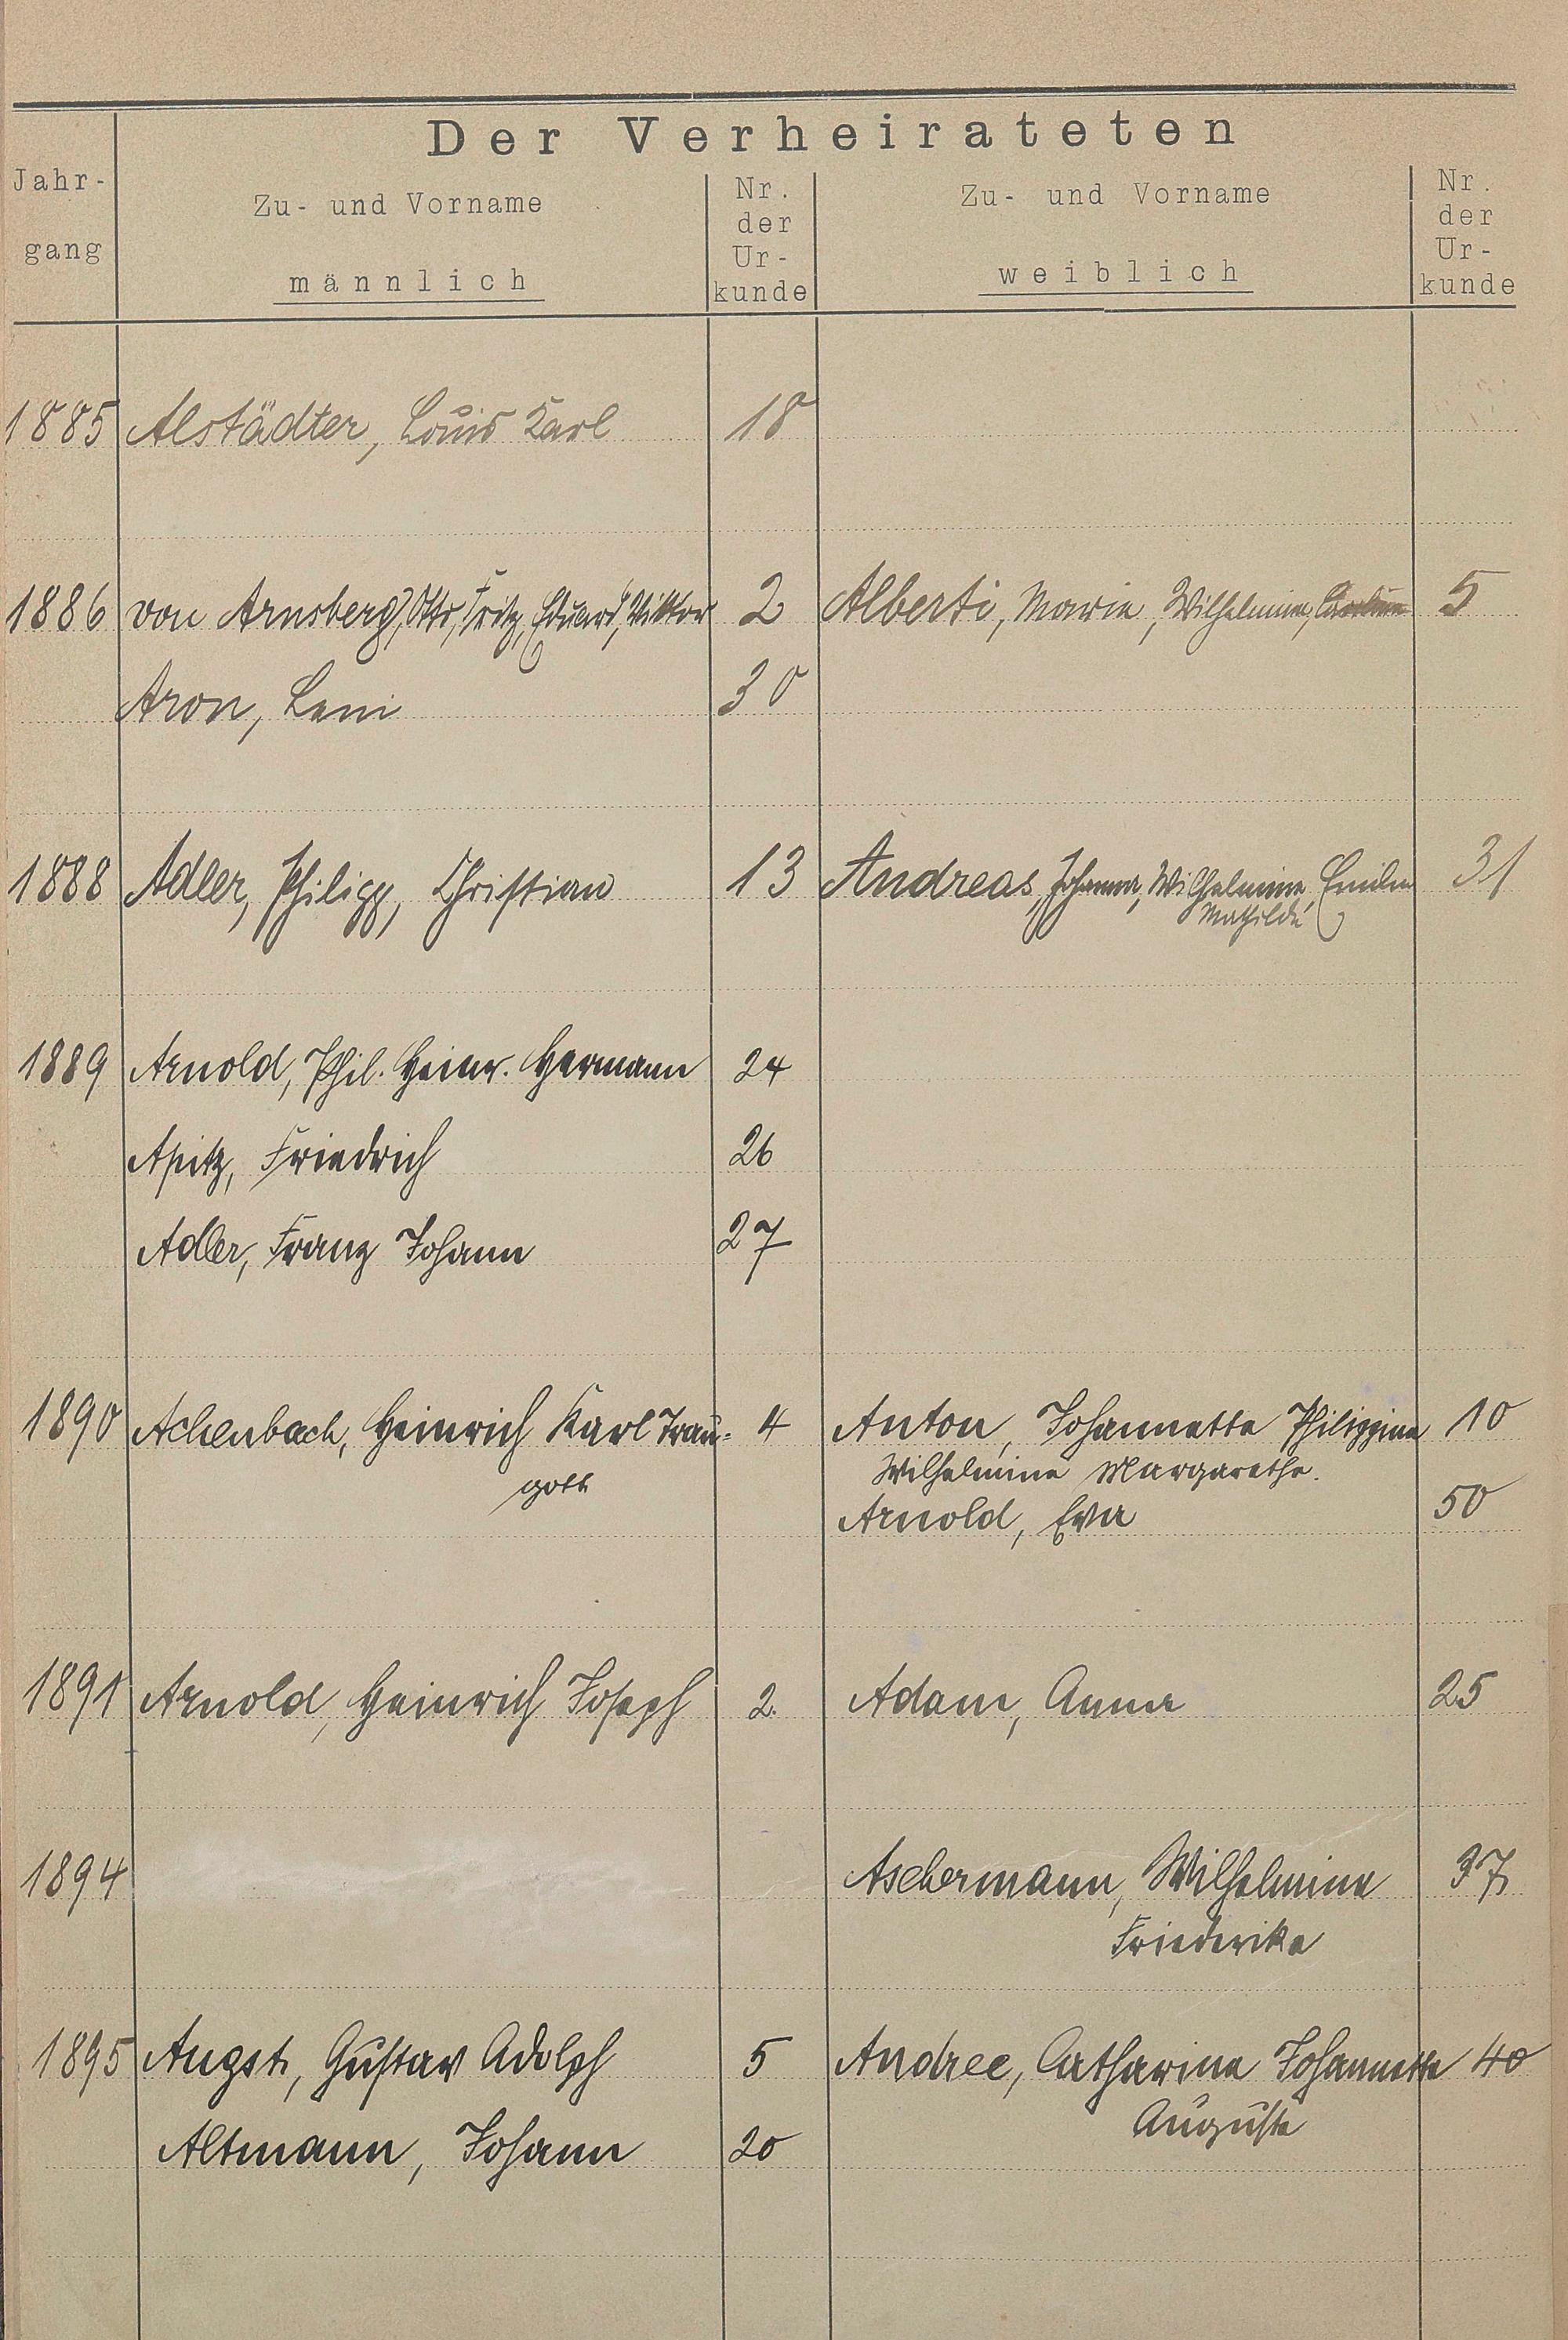 Der Verheirateten
Jahr-
gang
Zu- und Vorname
männlich
Nr.
der
Ur-
kunde
Zu- und Vorname
weiblich
Nr.
der
Ur-
kunde
1885 Alstädter, Louis Karl 18
1886 von Arnsberg, Otto, Fritz, Eduard, Viktor 2 Alberti, Marie, Wilhelmine, 5
Aron, Leni 30
1888 Adler, Philipp, Christian 13 Andreas, Johanna, Wilhelmine, Emilie 31
Mathilde
1889 Arnold, Phil. Heinr. Hermann 24
Apitz, Friedrich 26
Adler, Franz Johann 27
1890 Achenbach, Heinrich Karl Trau- 4 Anton, Johannette Philippine 10
gott Wilhelmine Margarethe.
Arnold, Eva 50
1891 Arnold, Heinrich Joseph 2. Adam, Anna 25
1894 Aschermann, Wilhelmine 37
Friederike
1895 Augst, Gustav Adolph 5 Andree, Catharine Johannette 40
Auguste
Altmann, Johann 20